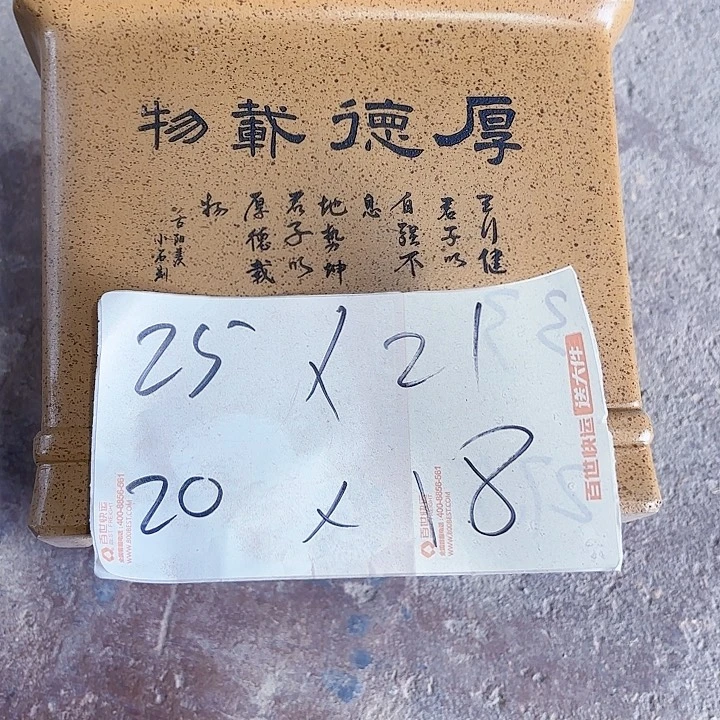 厚德載物
天行健
君子以
自强不
息
地勢坤
君子以
厚德載
物
25 x 21
20 x 18
百世快运 送大件
百世快运
400-8856-561
WWW.800BEST.COM
百世快运
400-8856-561
WWW.800BEST.COM